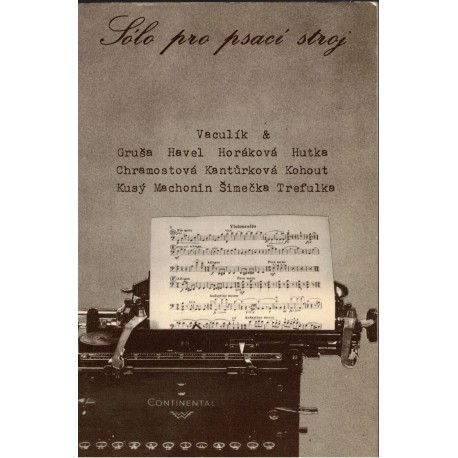 Sólo pro psací stroj
Vaculík &
Gruša Havel Horáková Hutka
Chramostová Kantůrková Kohout
Kusý Machonin Šimečka Trefulka
Violoncello
CONTINENTAL